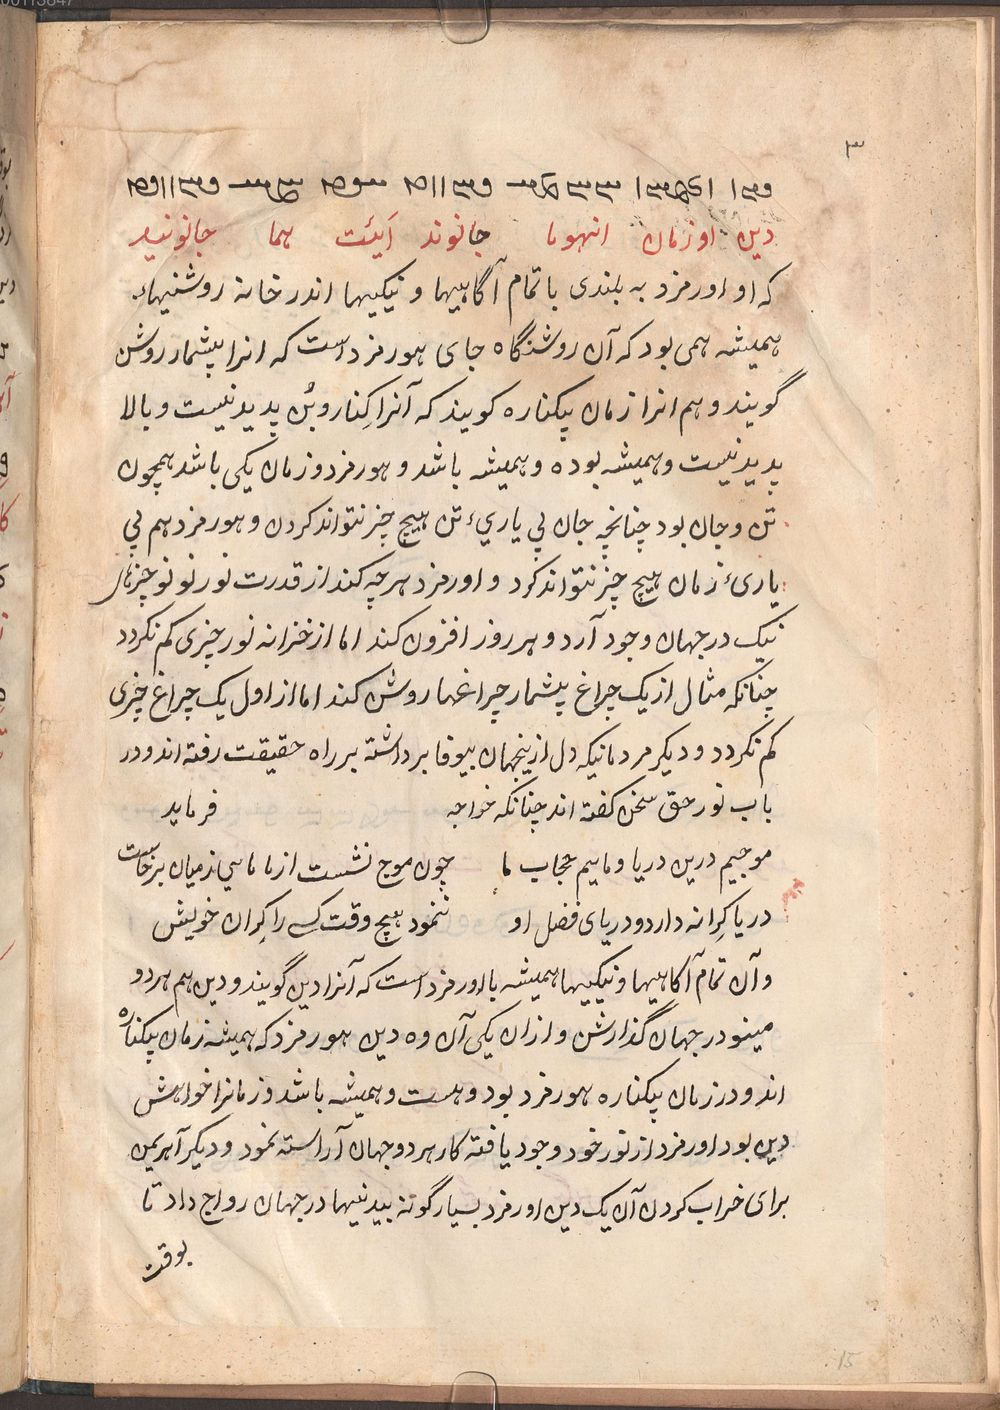 ۳
دین اوزمان انهوما جانوند اَیئت هما جانونید
که او اورمزد به بلندی با تمام آگاهیها و نیکیها اندر خانه روشنیهاء
همیشه همی بود که آن روشنگاه جای هورمزداست که انرا بیشمار روشن
گویند و هم انرا زمان بیکناره کویند که آنرا کِنار و بُن پدید نیست و بالا
پدید نیست و همیشه بوده و همیشه باشد و هورمزد و زمان یکی باشد همچون
تن و جان بود چنانچه جان بی یاریء تن هیچ چیز نتواند کردن و هورمزد هم بی
یاریء زمان هیچ چیز نتواند کرد و اورمزد هرچه کند از قدرت نور نو نو چیزهای
نیک در جهان وجود آرد و هر روز افزون کند اما از خزانه نور چیزی کم نکردد
چنانکه مثال از یک چراغ بیشمار چراغها روشن کند اما از اول یک چراغ چیزی
کم نکردد و دیکر مردمانیکه دل ازینجهان بیوفا برداشته بر راه حقیقت رفته اند و در
باب نور حق سخن کفته اند چنانکه خواجه فرماید
موجیم درین دریا و ماییم حجاب ما چون موج نشست از ما ماسی ز میان برخاست
دریا کِرانه دارد و دریای فضل او ننمود هیچ وقت کسی را کِران خویش
و آن تمام آکاهیها و نیکییها همیشه با اورمزداست که آنرا دین گویند و دین هم هر دو
مینو در جهان گذارشن و ازان یکی آن وه دین هورمزد که همیشه زمان بیکناره
اند و در زمان بیکناره هورمزد بود و هست و همیشه باشد و زمانرا خواهش
دین بود اورمزد از نور خود وجود یافته کار هر دو جهان آراسته نمود و دیکر آهریمن
برای خراب کردن آن یک دین اورمزد بسیار گونه بیدنیها در جهان رواج داد تا
بوقت
15